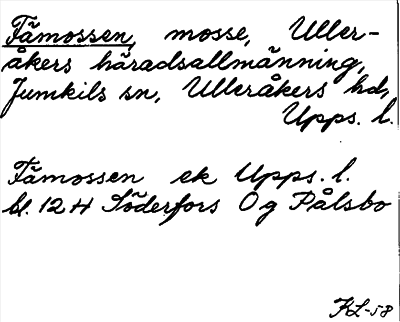 Fämossen, mosse, Uller-
åkers häradsallmänning,
Jumkils sn, Ulleråkers hd,
Upps. l.
Fämossen ek Upps. l.
bl. 12 H Söderfors O g Pålsbo
KL-58